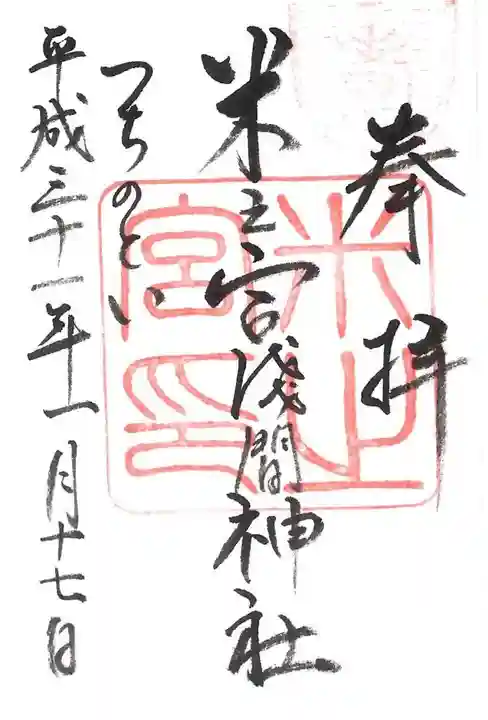 奉拝
米之宮浅間神社
つちのとい
平成三十一年一月十七日
米之宮印